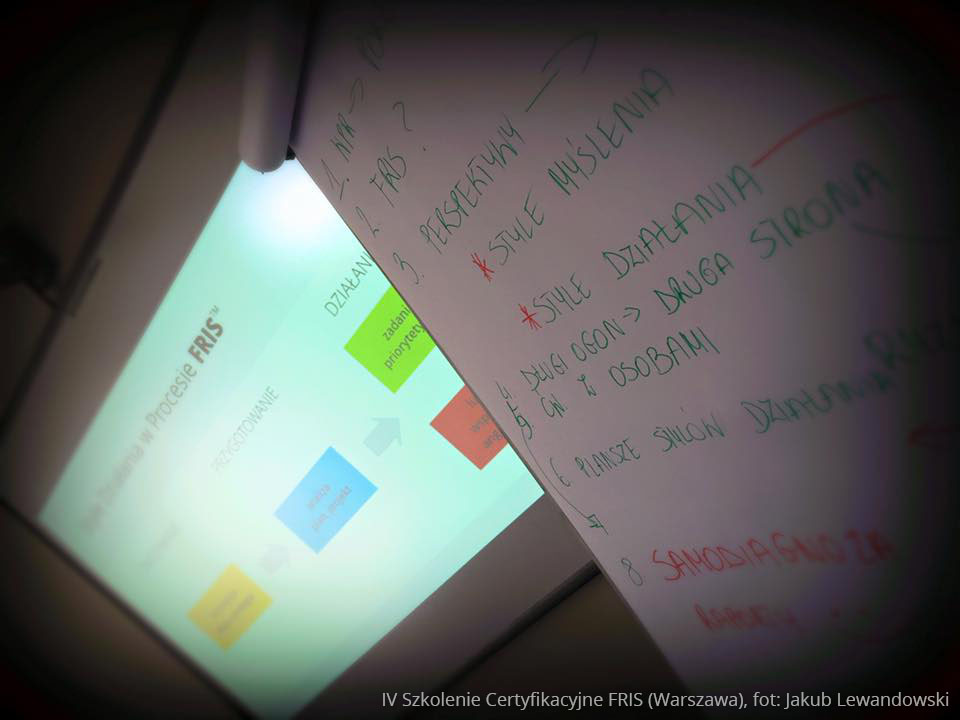 Działania w Procesie FRIS™
PRZYGOTOWANIE
DZIAŁANI
zadani
priorytety
analiza
plan, projekt
1. NPR →
2. FRIS ?
3. PERSPEKTYWY
* STYLE MYŚLENIA
* STYLE DZIAŁANIA
4 DŁUGI OGON -> DRUGA STRONA
5 ĆW Z OSOBAMI
6 PLANSZE STYLÓW DZIAŁANIA
7
8 SAMODIAGNOZA
RAPORTY
IV Szkolenie Certyfikacyjne FRIS (Warszawa), fot: Jakub Lewandowski